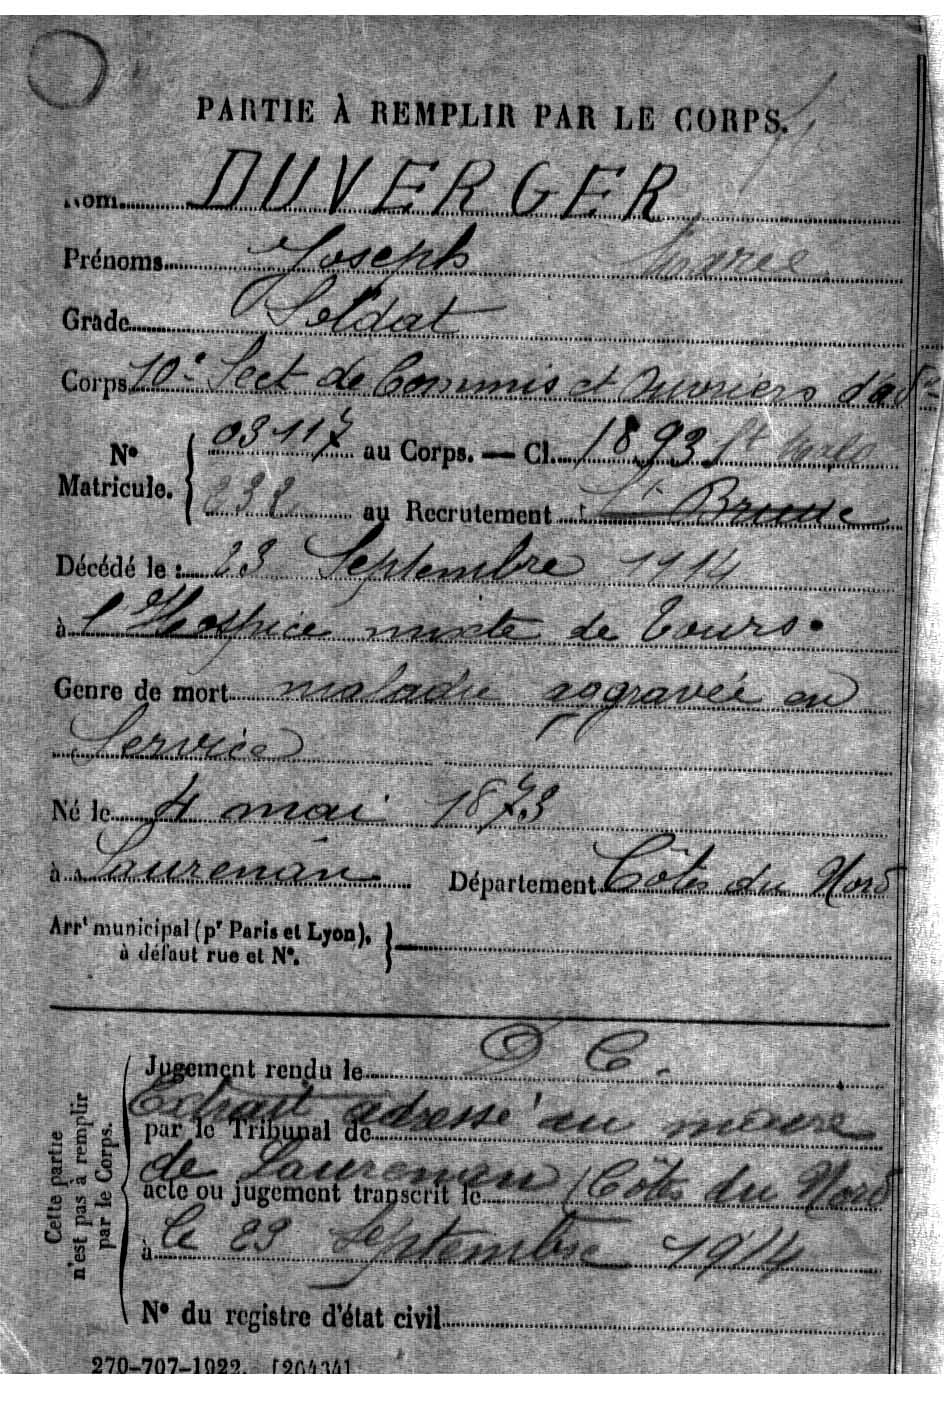 PARTIE À REMPLIR PAR LE CORPS.
Nom DUVERGER
Prénoms Joseph Marie
Grade Soldat
Corps 10e Sect de Commis et Ouvriers d'adon
No Matricule. 03117 au Corps. — Cl. 1893 St Malo
232 au Recrutement St Brieuc
Décédé le : 23 Septembre 1914
à l'Hospice mixte de Tours.
Genre de mort maladie aggravée en
Service
Né le 4 mai 1873
à Laurenan Département Côtes du Nord
Arrt municipal (pr Paris et Lyon),
à défaut rue et No.
Cette partie n'est pas à remplir par le Corps.
Jugement rendu le D C.
Extrait adressé au maire
par le Tribunal de
de Laurenan (Côtes du Nord
acte ou jugement transcrit le
à le 23 Septembre 1914
No du registre d'état civil
270-707-1922. [26434]